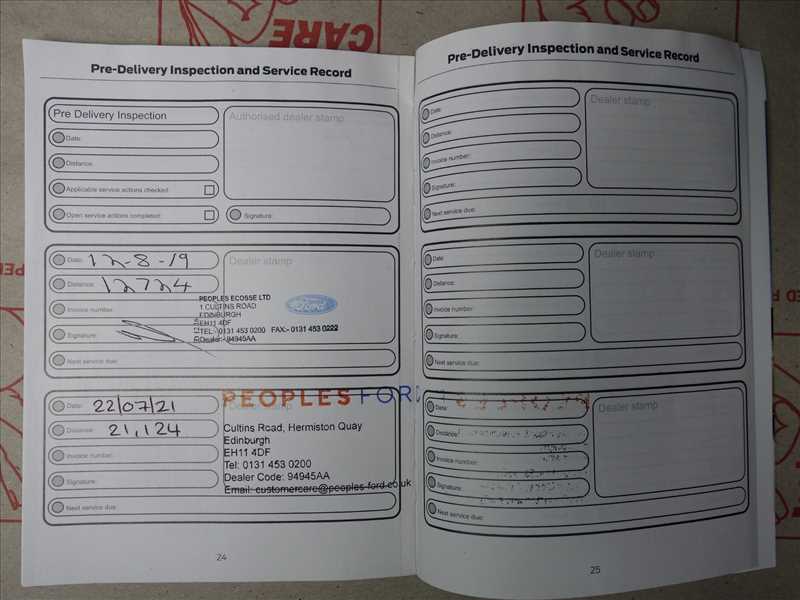 CARE
Pre-Delivery Inspection and Service Record
Pre Delivery Inspection
Authorised dealer stamp
Date:
Distance:
Applicable service actions checked:
Open service actions completed:
Signature:
Date: 12-8-19
Dealer stamp
Distance: 12724
Invoice number:
PEOPLES ECOSSE LTD
1 CULTINS ROAD
EDINBURGH
EH11 4DF
TEL:- 0131 453 0200 FAX:- 0131 453 0222
Dealer:- 94945AA
Ford
Signature:
Next service due:
PEOPLES FORD
Date: 22/07/21
Dealer stamp
Distance: 21,124
Cultins Road, Hermiston Quay
Edinburgh
EH11 4DF
Tel: 0131 453 0200
Dealer Code: 94945AA
Email: customercare@peoples-ford.co.uk
Invoice number:
Signature:
Next service due:
24
Pre-Delivery Inspection and Service Record
Date:
Dealer stamp
Distance:
Invoice number:
Signature:
Next service due:
Date:
Dealer stamp
Distance:
Invoice number:
Signature:
Next service due:
Date:
Dealer stamp
Distance:
Invoice number:
Signature:
Next service due:
25